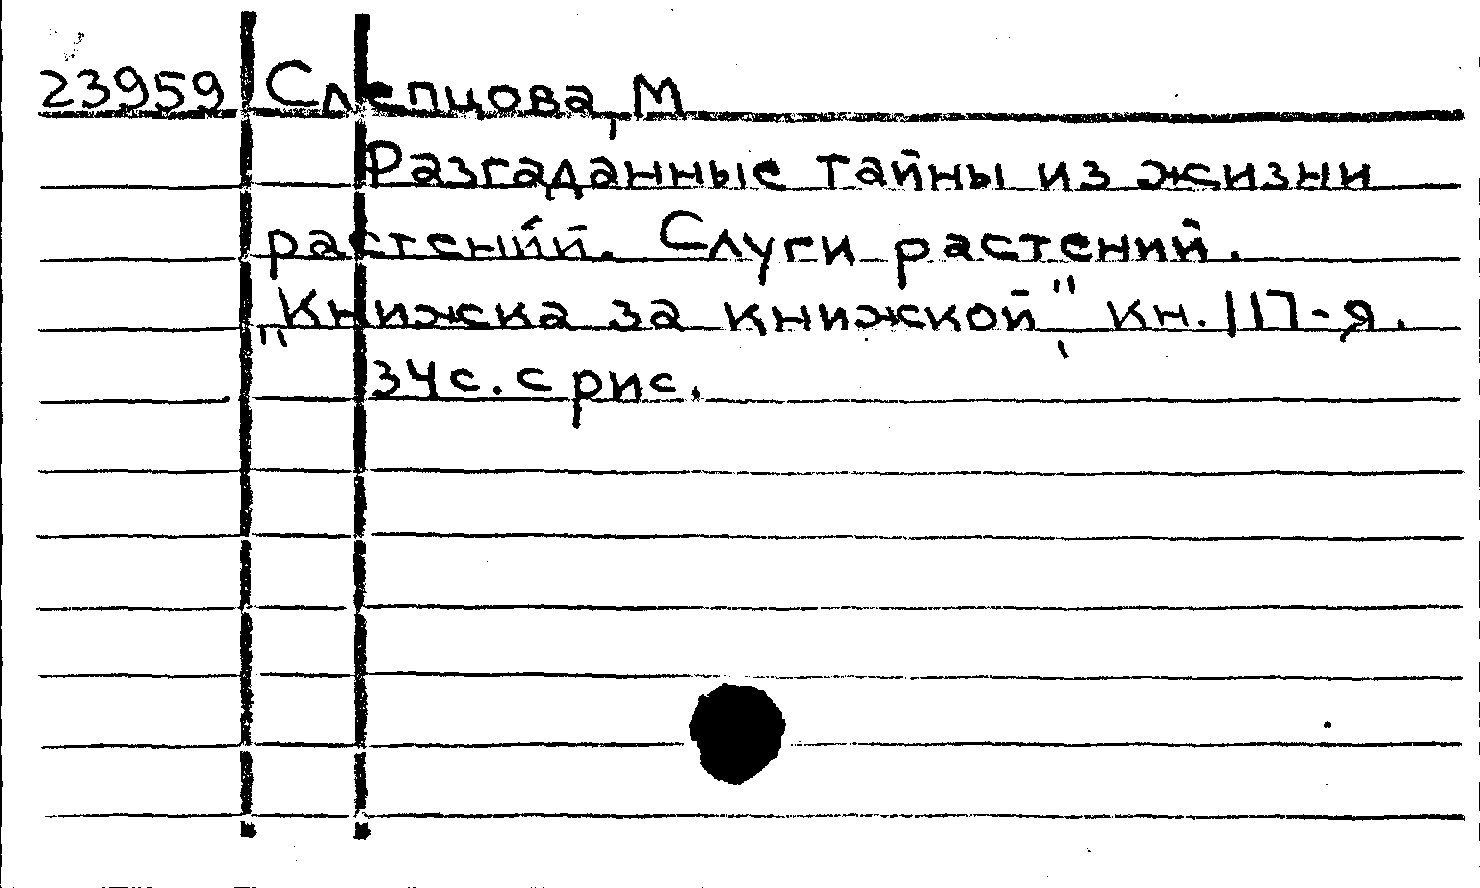 23959 Слепцова, М
Разгаданные тайны из жизни
растений. Слуги растений.
"Книжка за книжкой", кн. 117-я.
34 с. с рис.